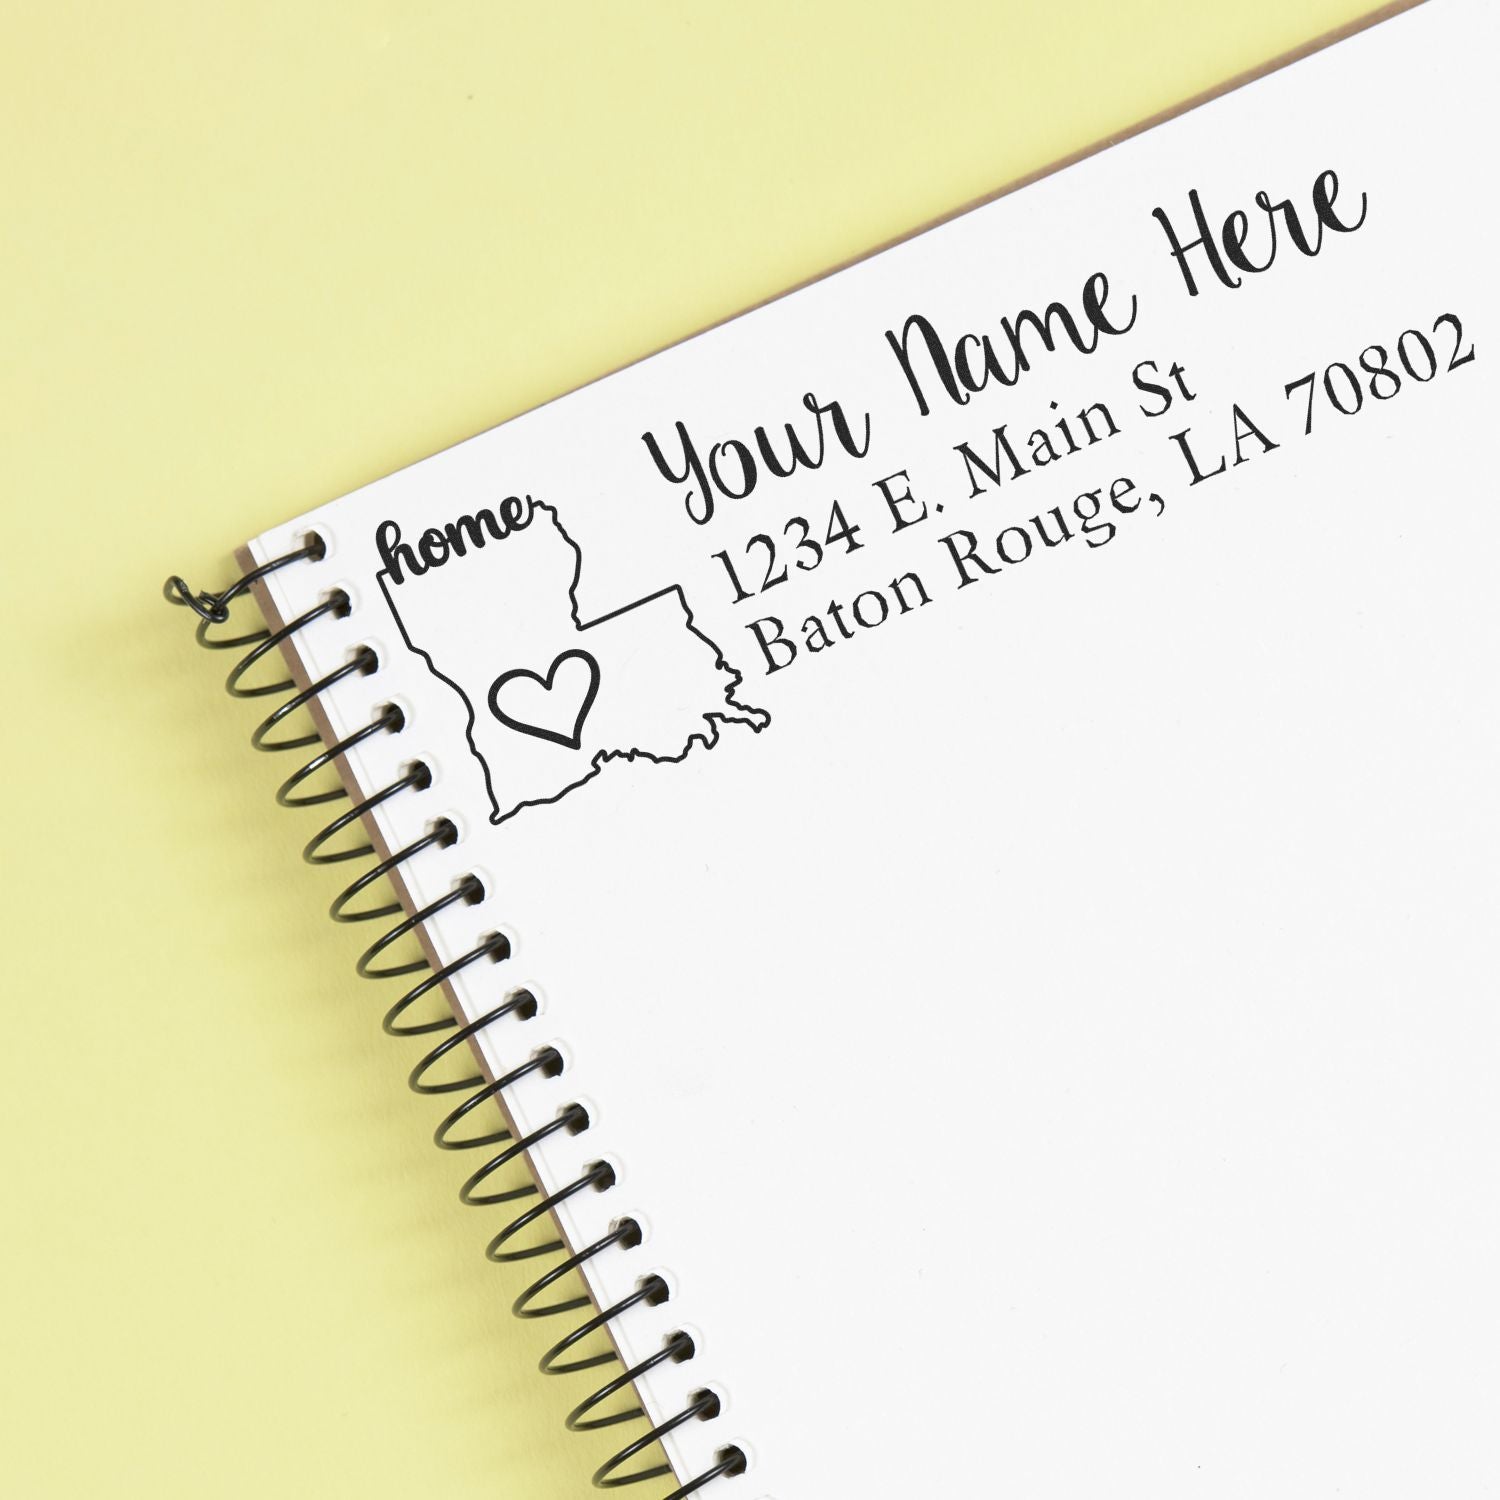 home
Your Name Here
1234 E. Main St
Baton Rouge, LA 70802